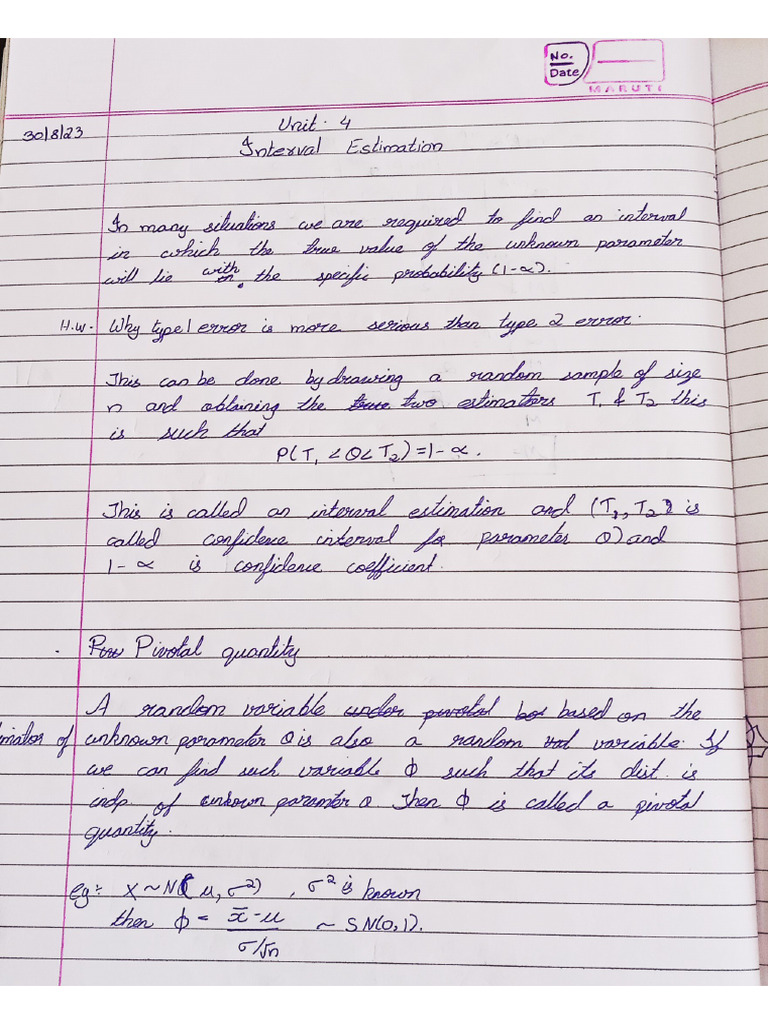 No.
Date
MARUTI
30/8/23
Unit. 4
Interval Estimation
In many situations we are required to find an interval
in which the true value of the unknown parameter
will lie with on the specific probability (1-α).
H.W. Why type 1 error is more serious than type 2 error.
This can be done by drawing a random sample of size
n and obtaining the true two estimators T₁ & T₂ this
is such that
P(T₁ < θ < T₂) = 1 - α.
This is called an interval estimation and (T₁, T₂) is
called confidence interval for parameter θ) and
1 - α is confidence coefficient.
Pivotal quantity
A random variable under pivotal based on the
mator of unknown parameter θ is also a random variable. If
we can find such variable ϕ such that its dist. is
indp of unknown parameter θ. Then ϕ is called a pivotal
quantity.
eg:- X ~ N(μ, σ²), σ² is known
then ϕ = x̄ - μ / σ/√n ~ SN(0,1).